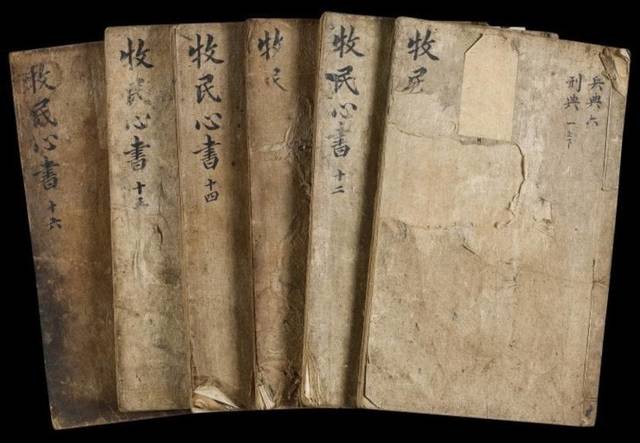 兵典六
刑典一上下
牧民
牧民心書 十二
牧民
牧民心書 十四
牧民心書 十五
牧民心書 十六